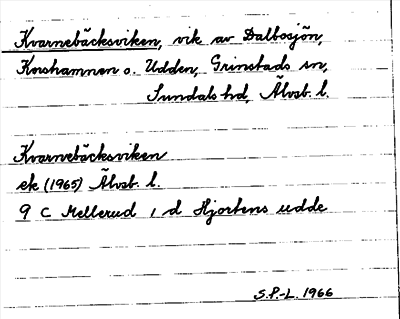 Kvarnebäcksviken, vik av Dalbosjön,
Korshamnen o. Udden, Grinstads sn,
Sundals hd, Älvsb. l.
Kvarnebäcksviken
ek (1965) Älvsb. l.
9 C Mellerud 1 d Hjortens udde
S.P.-L. 1966